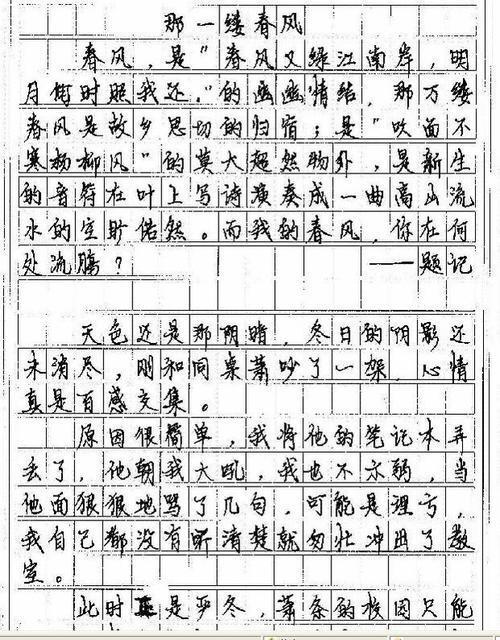 那一缕春风
春风，是"春风又绿江南岸，明
月何时照我还。"的幽幽情结，那万缕
春风是故乡思切的归宿；是"吹面不
寒杨柳风"的莫大超然物外，是新生
的音符在叶上写诗演奏成一曲高山流
水的空旷偌然。而我的春风，你在何
处流腾？——题记
天色还是那阴暗，冬日的阴影还
未消尽，刚和同桌萧吵了一架，心情
真是百感交集。
原因很简单，我将他的笔记本弄
丢了，他朝我大吼，我也不示弱，当
他面狠狠地骂了几句，可能是理亏，
我自己都没有听清楚就匆忙冲出了教
室。
此时正是严冬，萧条的校园只能